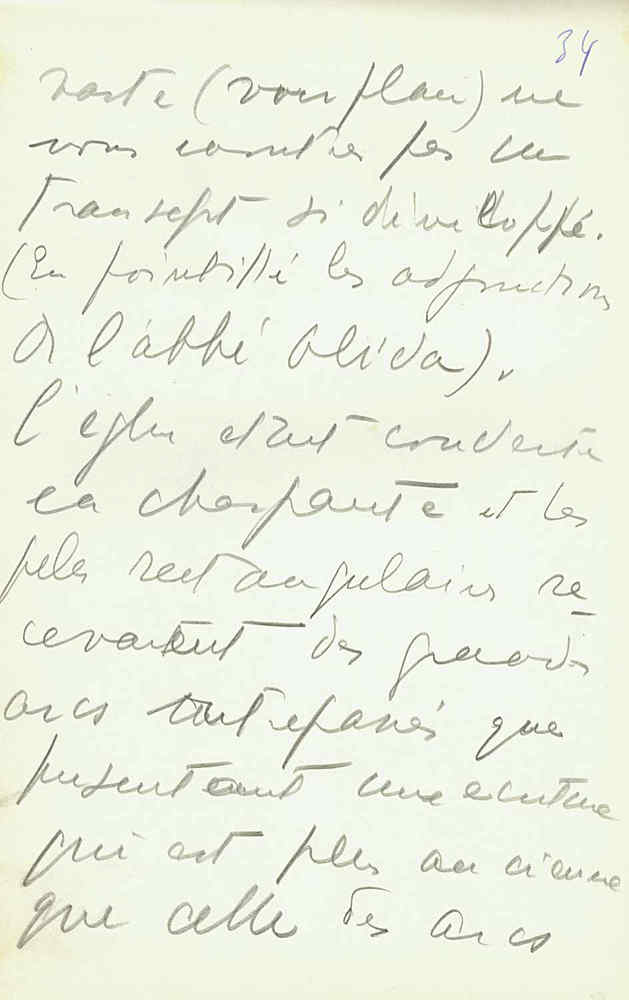 34
vaste (voir plan) ne
nous montre pas un
transept si développé.
(En pointillé les adjonctions
de l'abbé Oliba).
l'église était couverte
en charpente et les
piles rectangulaires re-
cevaient des grands
arcs outrepassés que
présentaient une
qui est plus ancienne
que celle des arcs